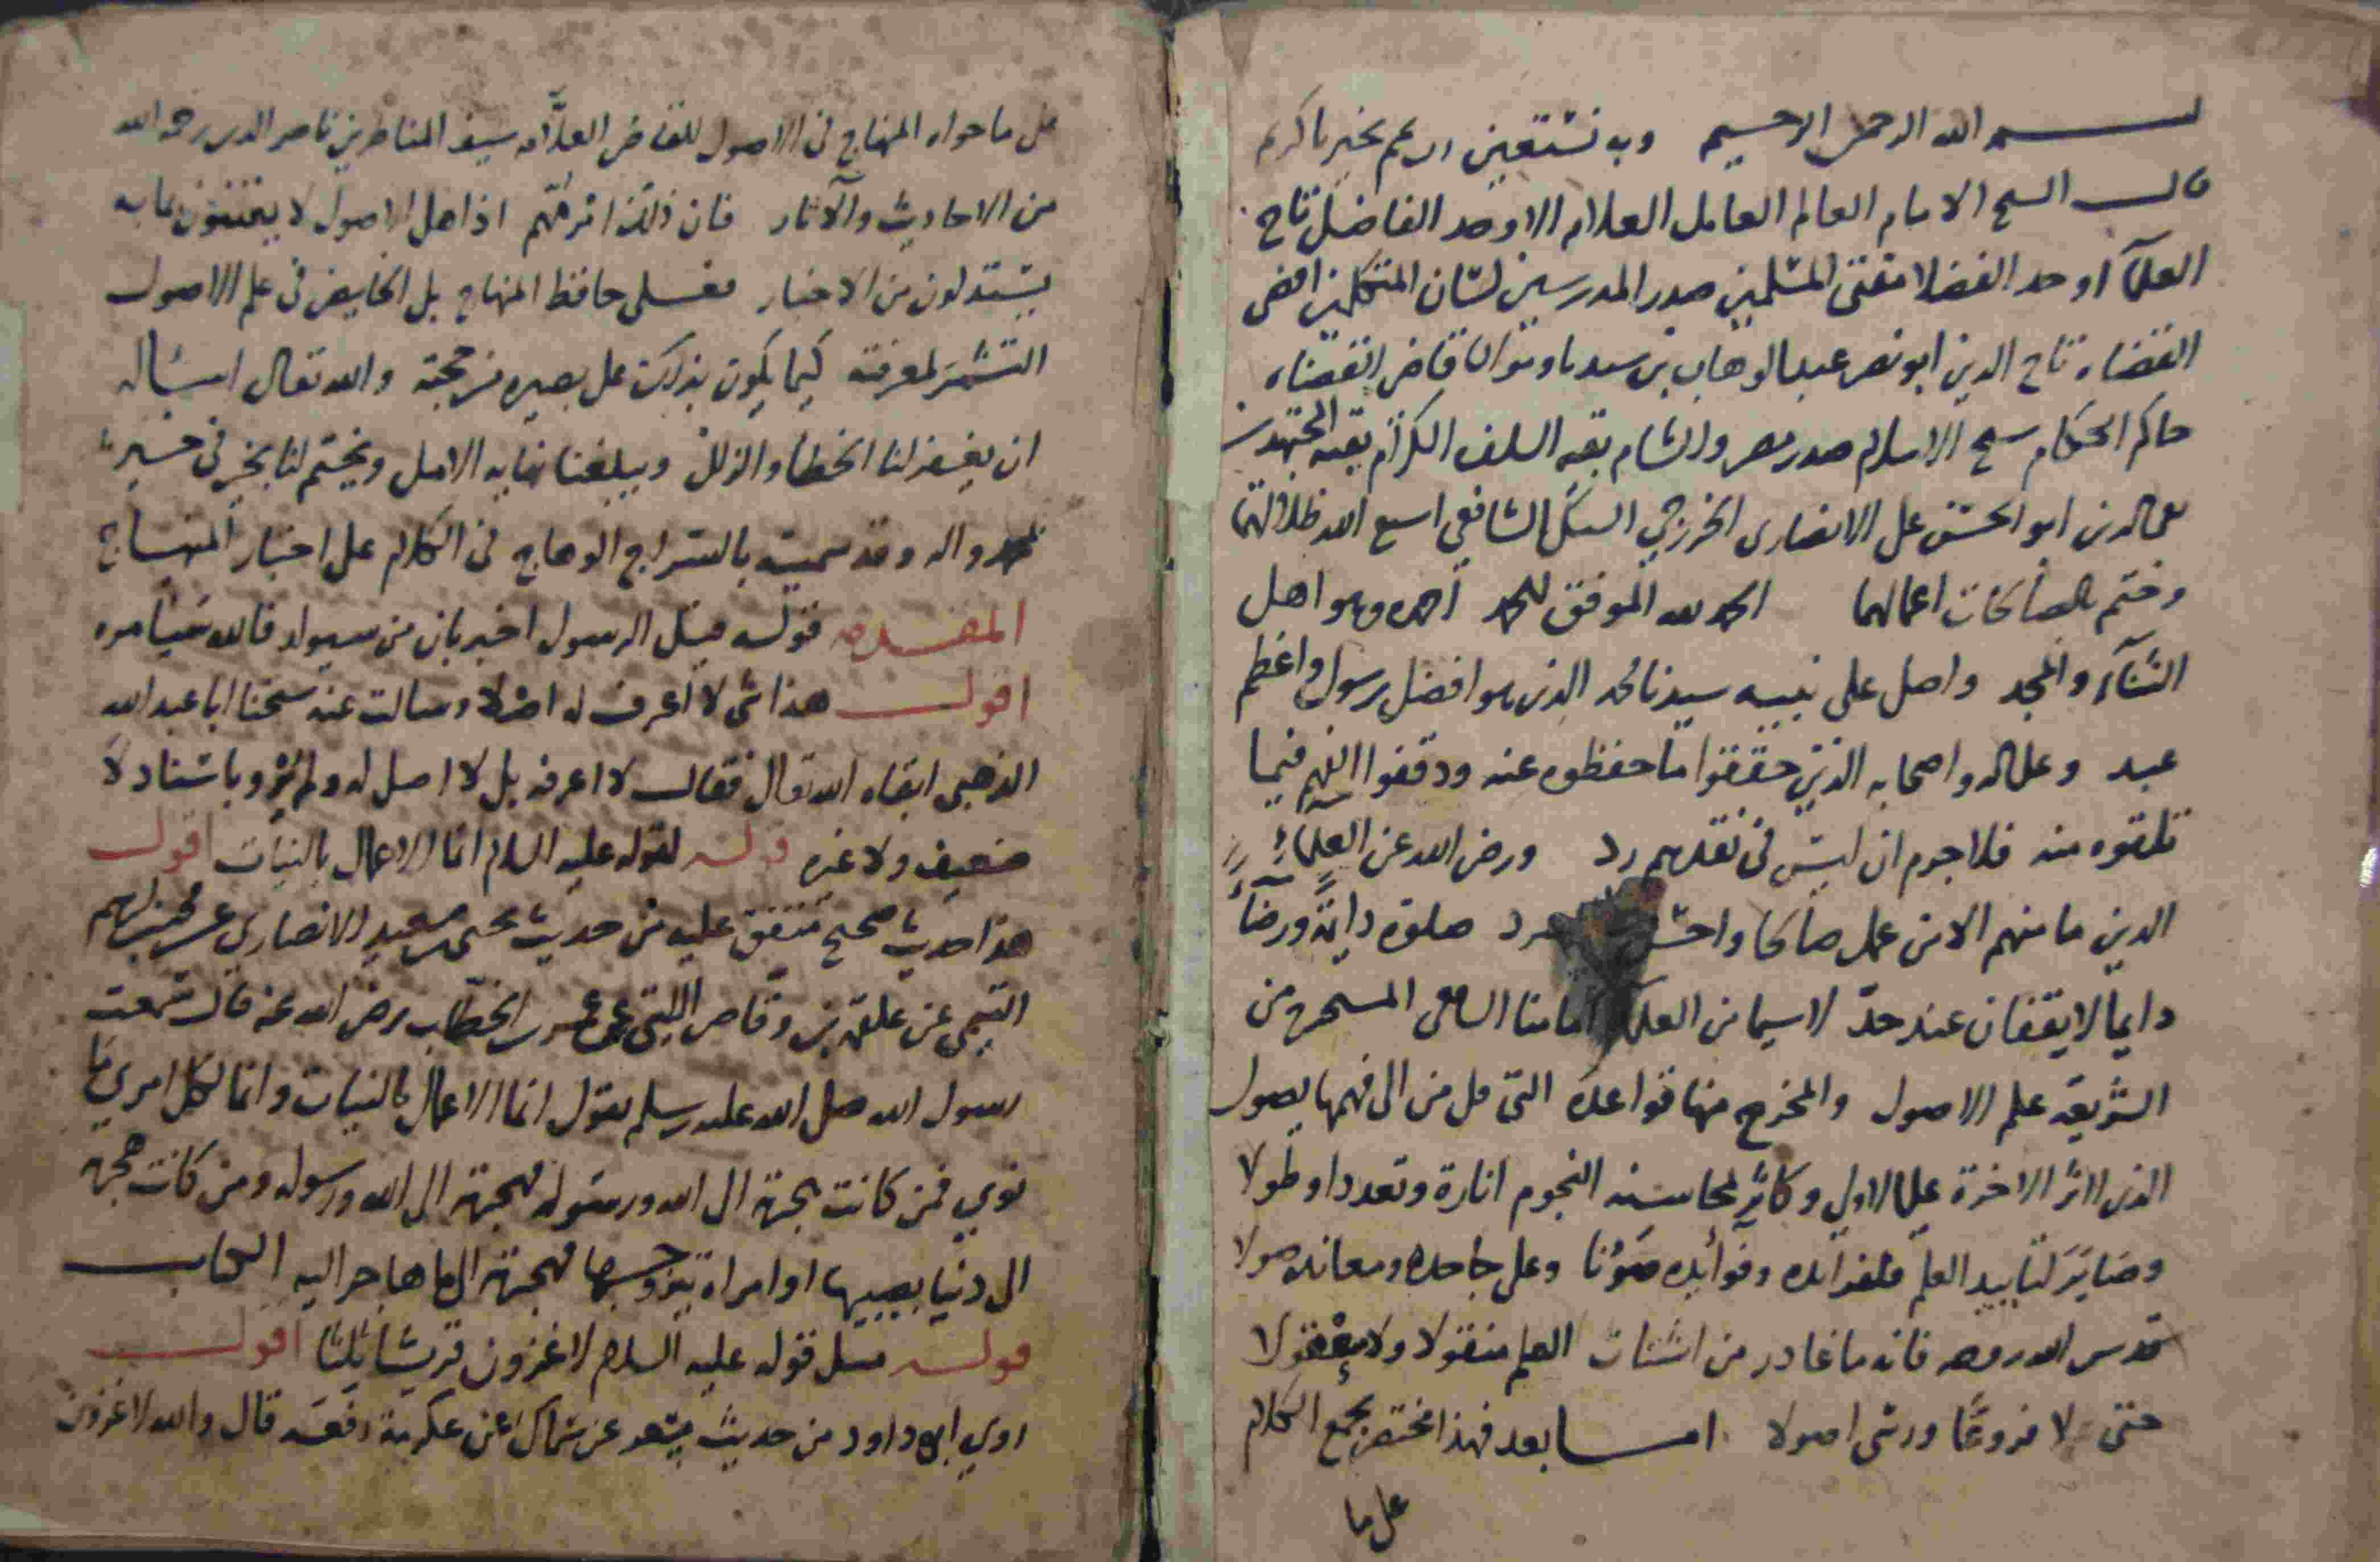 بسم الله الرحمن الرحيم وبه نستعين رب عم بخير يا كريم
قال الشيخ الامام العالم العامل العلامه الاوحد الفاضل تاج
العلمآ اوحد الفضلا مفتى المسلمين صدر المدرسين لسان المتكلمين اقضى
القضاه تاج الدين ابو نصر عبد الوهاب بن سيدنا ومولانا قاضى القضاه
حاكم الحكام شيخ الاسلام صدر مصر والشام بقيه السلف الكرام بقيه المجتهدين
تقى الدين ابو الحسن على الانصارى الخزرجي السبكى الشافعي اسبغ الله ظلالهما
وختم بالصالحات اعمالهما الحمد لله الموفق للحمد احمده وهو اهل
الثنآء والمجد واصلى على نبيه سيدنا محمد الذى هو افضل رسول واعظم
عبد وعلى اله واصحابه الذين حققوا ما حفظوه عنه ووقفوا اللهم فيما
تلقوه منه فلا جرم ان ليس فى نقلهم رد ورضى الله عن العلمآء
الذين ما منهم الا من عمل صالحا صلوة دايمة ورضآء
دايما لا يقفان عند حد لا سيما من العلمآ امامنا الشافعى المستخرج من
الشريعة علم الاصول والمخرج منها قواعده التى قل من الى فهمها يصول
الذى اثر الاخرة على الاولى وكاثر لمحاسنه النجوم انارة وتعددا وطولا
وصابر لتاييد العلم فلفرائده وفوائده صونا وعلى جاحده ومعانده صولا
قدس الله روحه فانه ما غادر من اشتات العلم منقولا ولا معقولا
حتى لا فروعا ورثى اصولا امـــا بعد فهذا مختصر يجمع الكلام
على ما
على ما حواه المنهاج فى الاصول للقاضى العلامه سيف المناظرين ناصر الدين رحمه الله
من الاحاديث والآثار فان ذلك اذ اهل الاصول لا يعتنون بما به
يستدلون من الاخبار فعلى حافظ المنهاج بل الخايض فى علم الاصول
التشمر لمعرفته كيما يكون بذلك على بصيره من حجته والله تعالى اساله
ان يغفر لنا الخطا والزلل ويبلغنا نهايه الامل ويختم لنا بخير فى خير
بمحمد واله وقد سميته بالسراج الوهاج فى الكلام على اخبار المنهاج
المقدمه قوله قيل الرسول اخبر بان من سيولد فالله سيامره
اقول هذا شى لا اعرف له اصلا وسالت عنه شيخنا ابا عبد الله
الذهبى ابقاه الله تعالى فقال لا اعرفه بل لا اصل له ولم يرو باسناد لا
ضعيف ولا غيره قوله لقوله عليه السلام انما الاعمال بالنيات اقول
هذا حديث صحيح متفق عليه من حديث يحيى بن سعيد الانصارى عن محمد بن ابراهيم
التيمى عن علقمة بن وقاص الليثى عن عمر بن الخطاب رضى الله عنه قال سمعت
رسول الله صلى الله عليه وسلم يقول انما الاعمال بالنيات وانما لكل امرى ما
نوى فمن كانت هجرته الى الله ورسوله فهجرته الى الله ورسوله ومن كانت هجرته
الى دنيا يصيبها او امراه يتزوجها فهجرته الى ما هاجر اليه
قوله مثل قوله عليه السلام لاغزون قريشا ثلثا اقول
روى ابو داود من حديث مسعر عن سماك عن عكرمة رفعه قال والله لاغزون